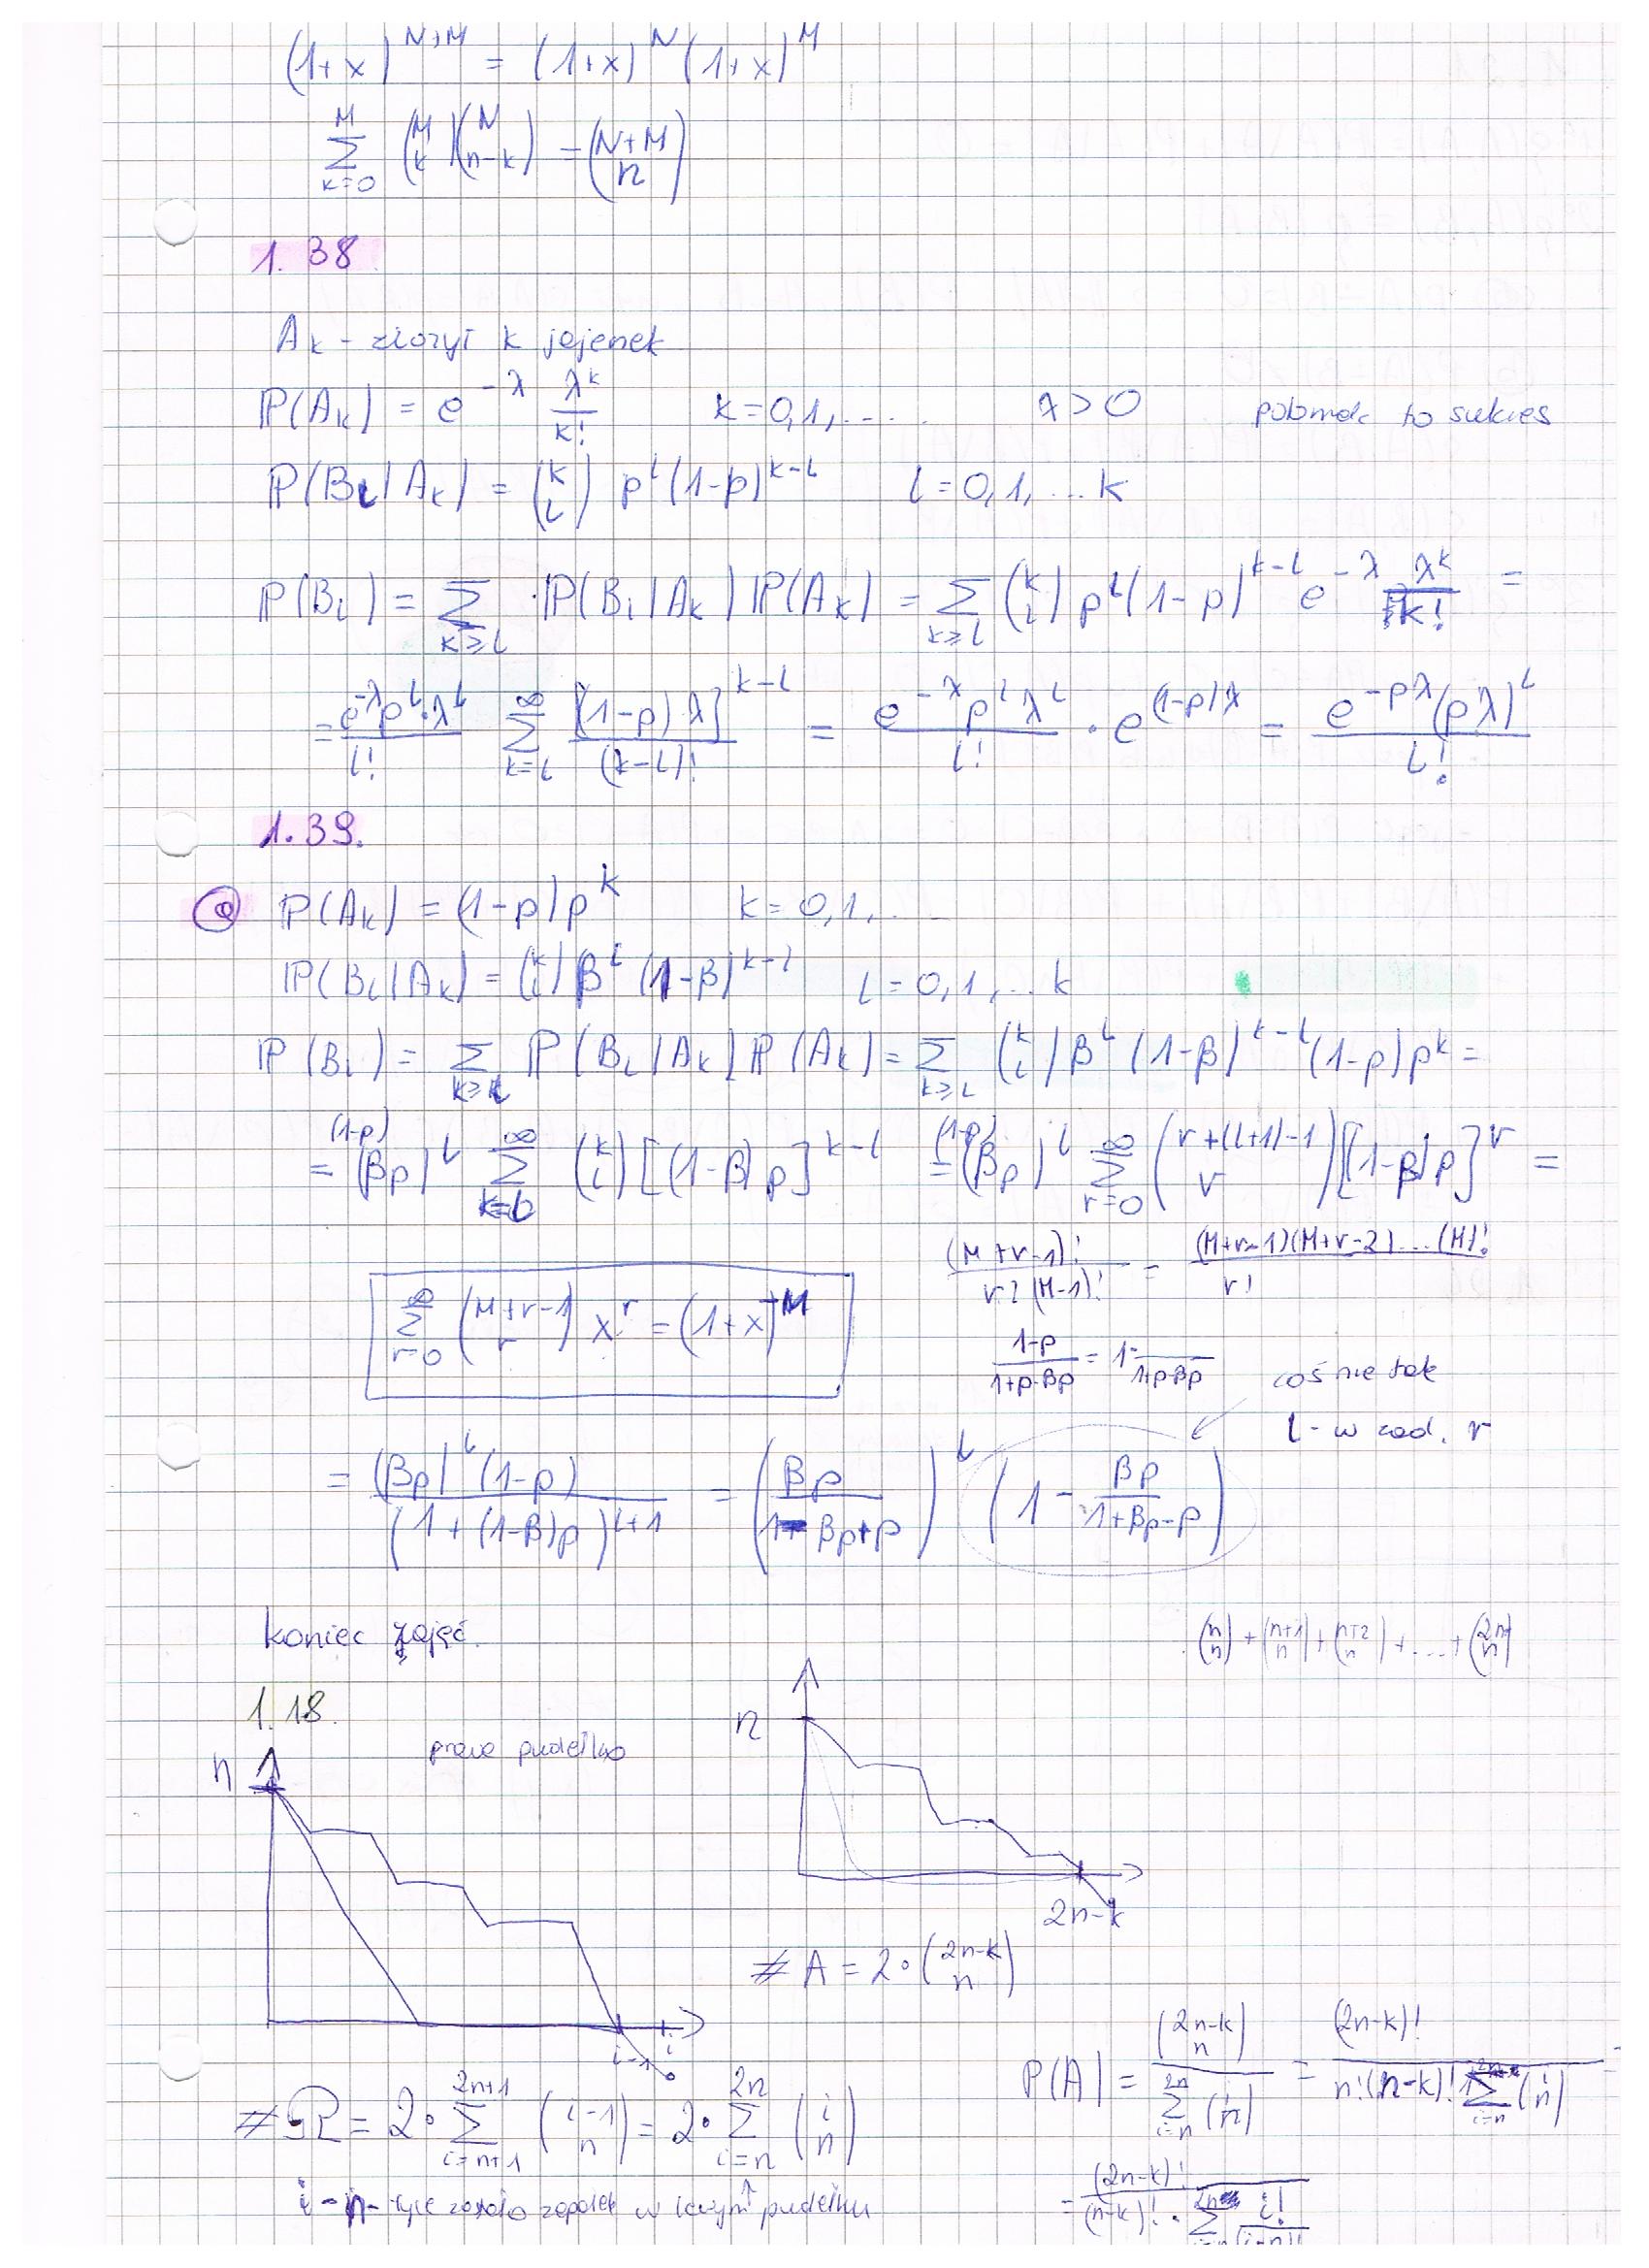 (1+x)^{N+M} = (1+x)^N (1+x)^M
\sum_{k=0}^{M} \binom{M}{k}\binom{N}{n-k} = \binom{N+M}{n}
1.38
A_k - złożył k jajenek
P(A_k) = e^{-λ} \frac{λ^k}{k!}   k=0,1,....   λ>0   potomek to sukces
P(B_l|A_k) = \binom{k}{l} p^l (1-p)^{k-l}   l=0,1,...k
P(B_l) = \sum_{k≥l} P(B_l|A_k) P(A_k) = \sum_{k≥l} \binom{k}{l} p^l (1-p)^{k-l} e^{-λ} \frac{λ^k}{k!} =
= \frac{e^{-λ} p^l·λ^l}{l!} \sum_{k=l}^{∞} \frac{[(1-p)λ]^{k-l}}{(k-l)!} = \frac{e^{-λ} p^l λ^l}{l!} · e^{(1-p)λ} = \frac{e^{-pλ}(pλ)^l}{l!}
1.39.
a P(A_k) = (1-p)p^k   k=0,1,...
P(B_l|A_k) = \binom{k}{l} β^l (1-β)^{k-l}   l=0,1,...k
P(B_l) = \sum_{k≥l} P(B_l|A_k) P(A_k) = \sum_{k≥l} \binom{k}{l} β^l (1-β)^{k-l} (1-p)p^k =
= (1-p)(βp)^l \sum_{k=l}^{∞} \binom{k}{l} [(1-β)p]^{k-l} = (1-p)(βp)^l \sum_{r=0}^{∞} \binom{r+(l+1)-1}{r} [(1-β)p]^r =
\frac{(M+r-1)!}{r!(M-1)!} = \frac{(M+r-1)(M+r-2)...(M)!}{r!}
\sum_{r=0}^{∞} \binom{M+r-1}{r} x^r = (1+x)^{-M}
\frac{1-p}{1+p-βp} = 1-\frac{}{1+p-βp}   coś nie tak
l - w zad. r
= \frac{(βp)^l (1-p)}{(1+(1-β)p)^{l+1}} = (\frac{βp}{1-βp+p})^l (1 - \frac{βp}{1+βp-p})
koniec zajęć.
\binom{n}{n} + \binom{n+1}{n} + \binom{n+2}{n} + ... + \binom{2n}{n}
1.18.
n   prawe pudełko
n
2n-k
# A = 2·\binom{2n-k}{n}
i-1   i
P(A) = \frac{\binom{2n-k}{n}}{\sum_{i=n}^{2n} \binom{i}{n}} = \frac{(2n-k)!}{n!(n-k)! \sum_{i=n}^{2n} \binom{i}{n}} =
# Ω = 2·\sum_{i=n+1}^{2n+1} \binom{i-1}{n} = 2·\sum_{i=n}^{2n} \binom{i}{n}
i-n- tyle zeszło zapałek w lewym pudełku
= \frac{(2n-k)!}{(n-k)! · \sum_{i=n}^{2n} \frac{i!}{(i-n)!}}